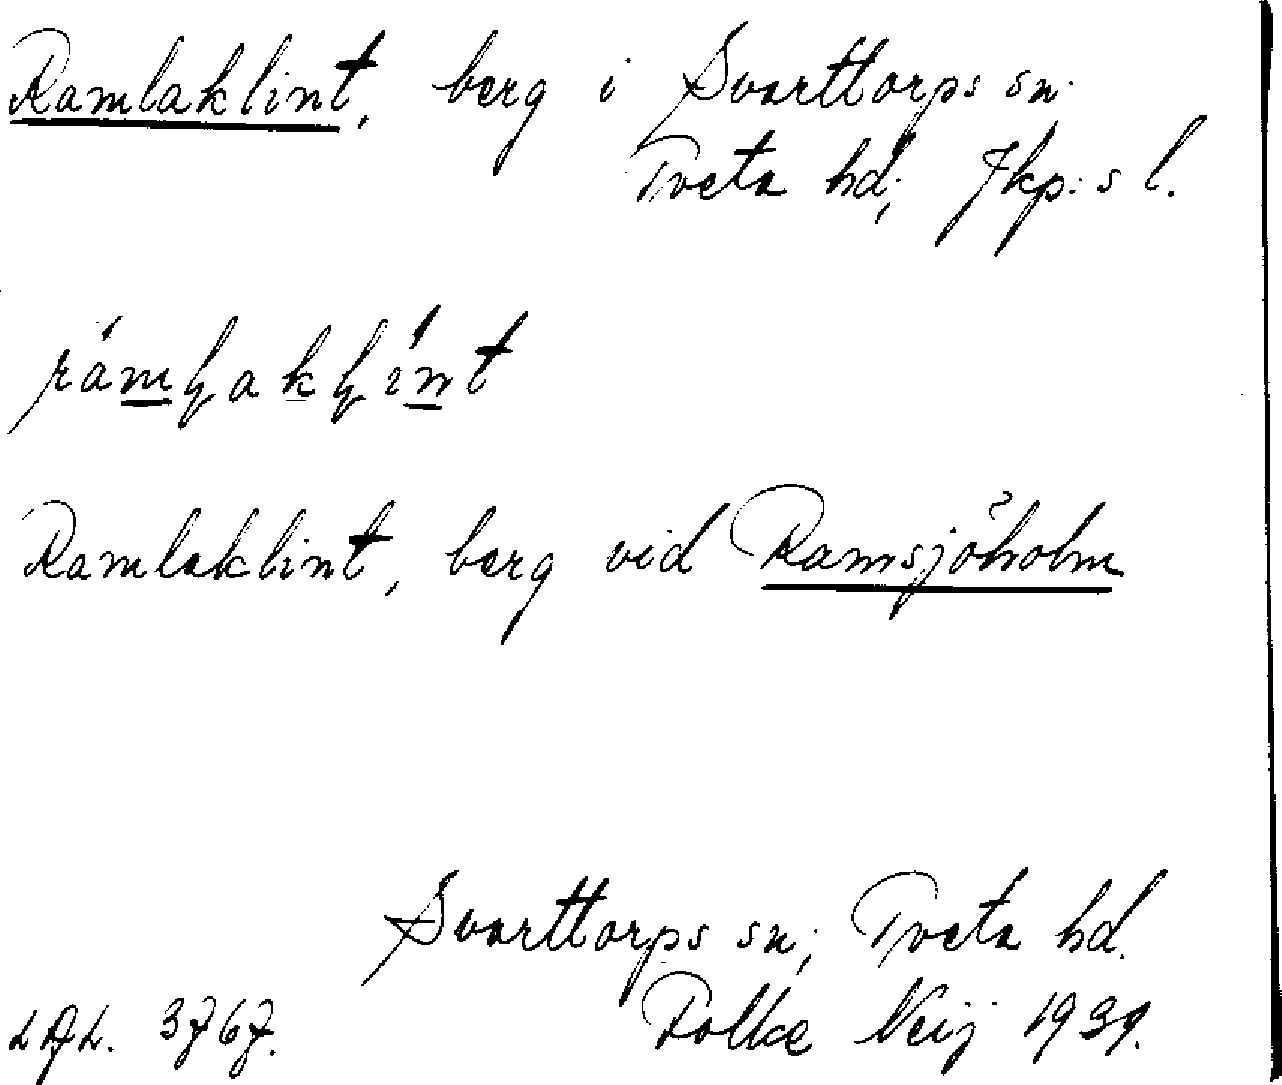 Ramlaklint, berg i Svarttorps sn.
Tveta hd; Jkp:s l.
rámḷakḷínt
Ramlaklint, berg vid Ramsjöholm
Svarttorps sn; Tveta hd.
3767. Folke Neij 1939.